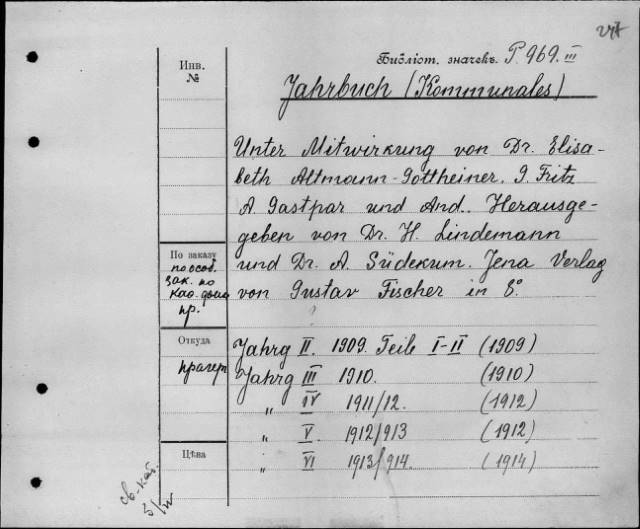 247
Библіот. значекъ. P. 969. III
Инв.
№
Jahrbuch (Kommunales)
Unter Mitwirkung von Dr. Elisa-
beth Altmann-Gottheiner. G. Fritz
A. Gastpar und And.. Herausge-
geben von Dr. H. Lindemann
und Dr. A. Südekum. Jena Verlag
von Gustav Fischer in 8°
По заказу
по особ.
зак. по
пр.
Откуда
Jahrg II. 1909. Teile I-II (1909)
Jahrg III 1910. (1910)
„ IV 1911/12. (1912)
„ V. 1912/913 (1912)
„ VI 1913/914. (1914)
Цѣна
св. кат.